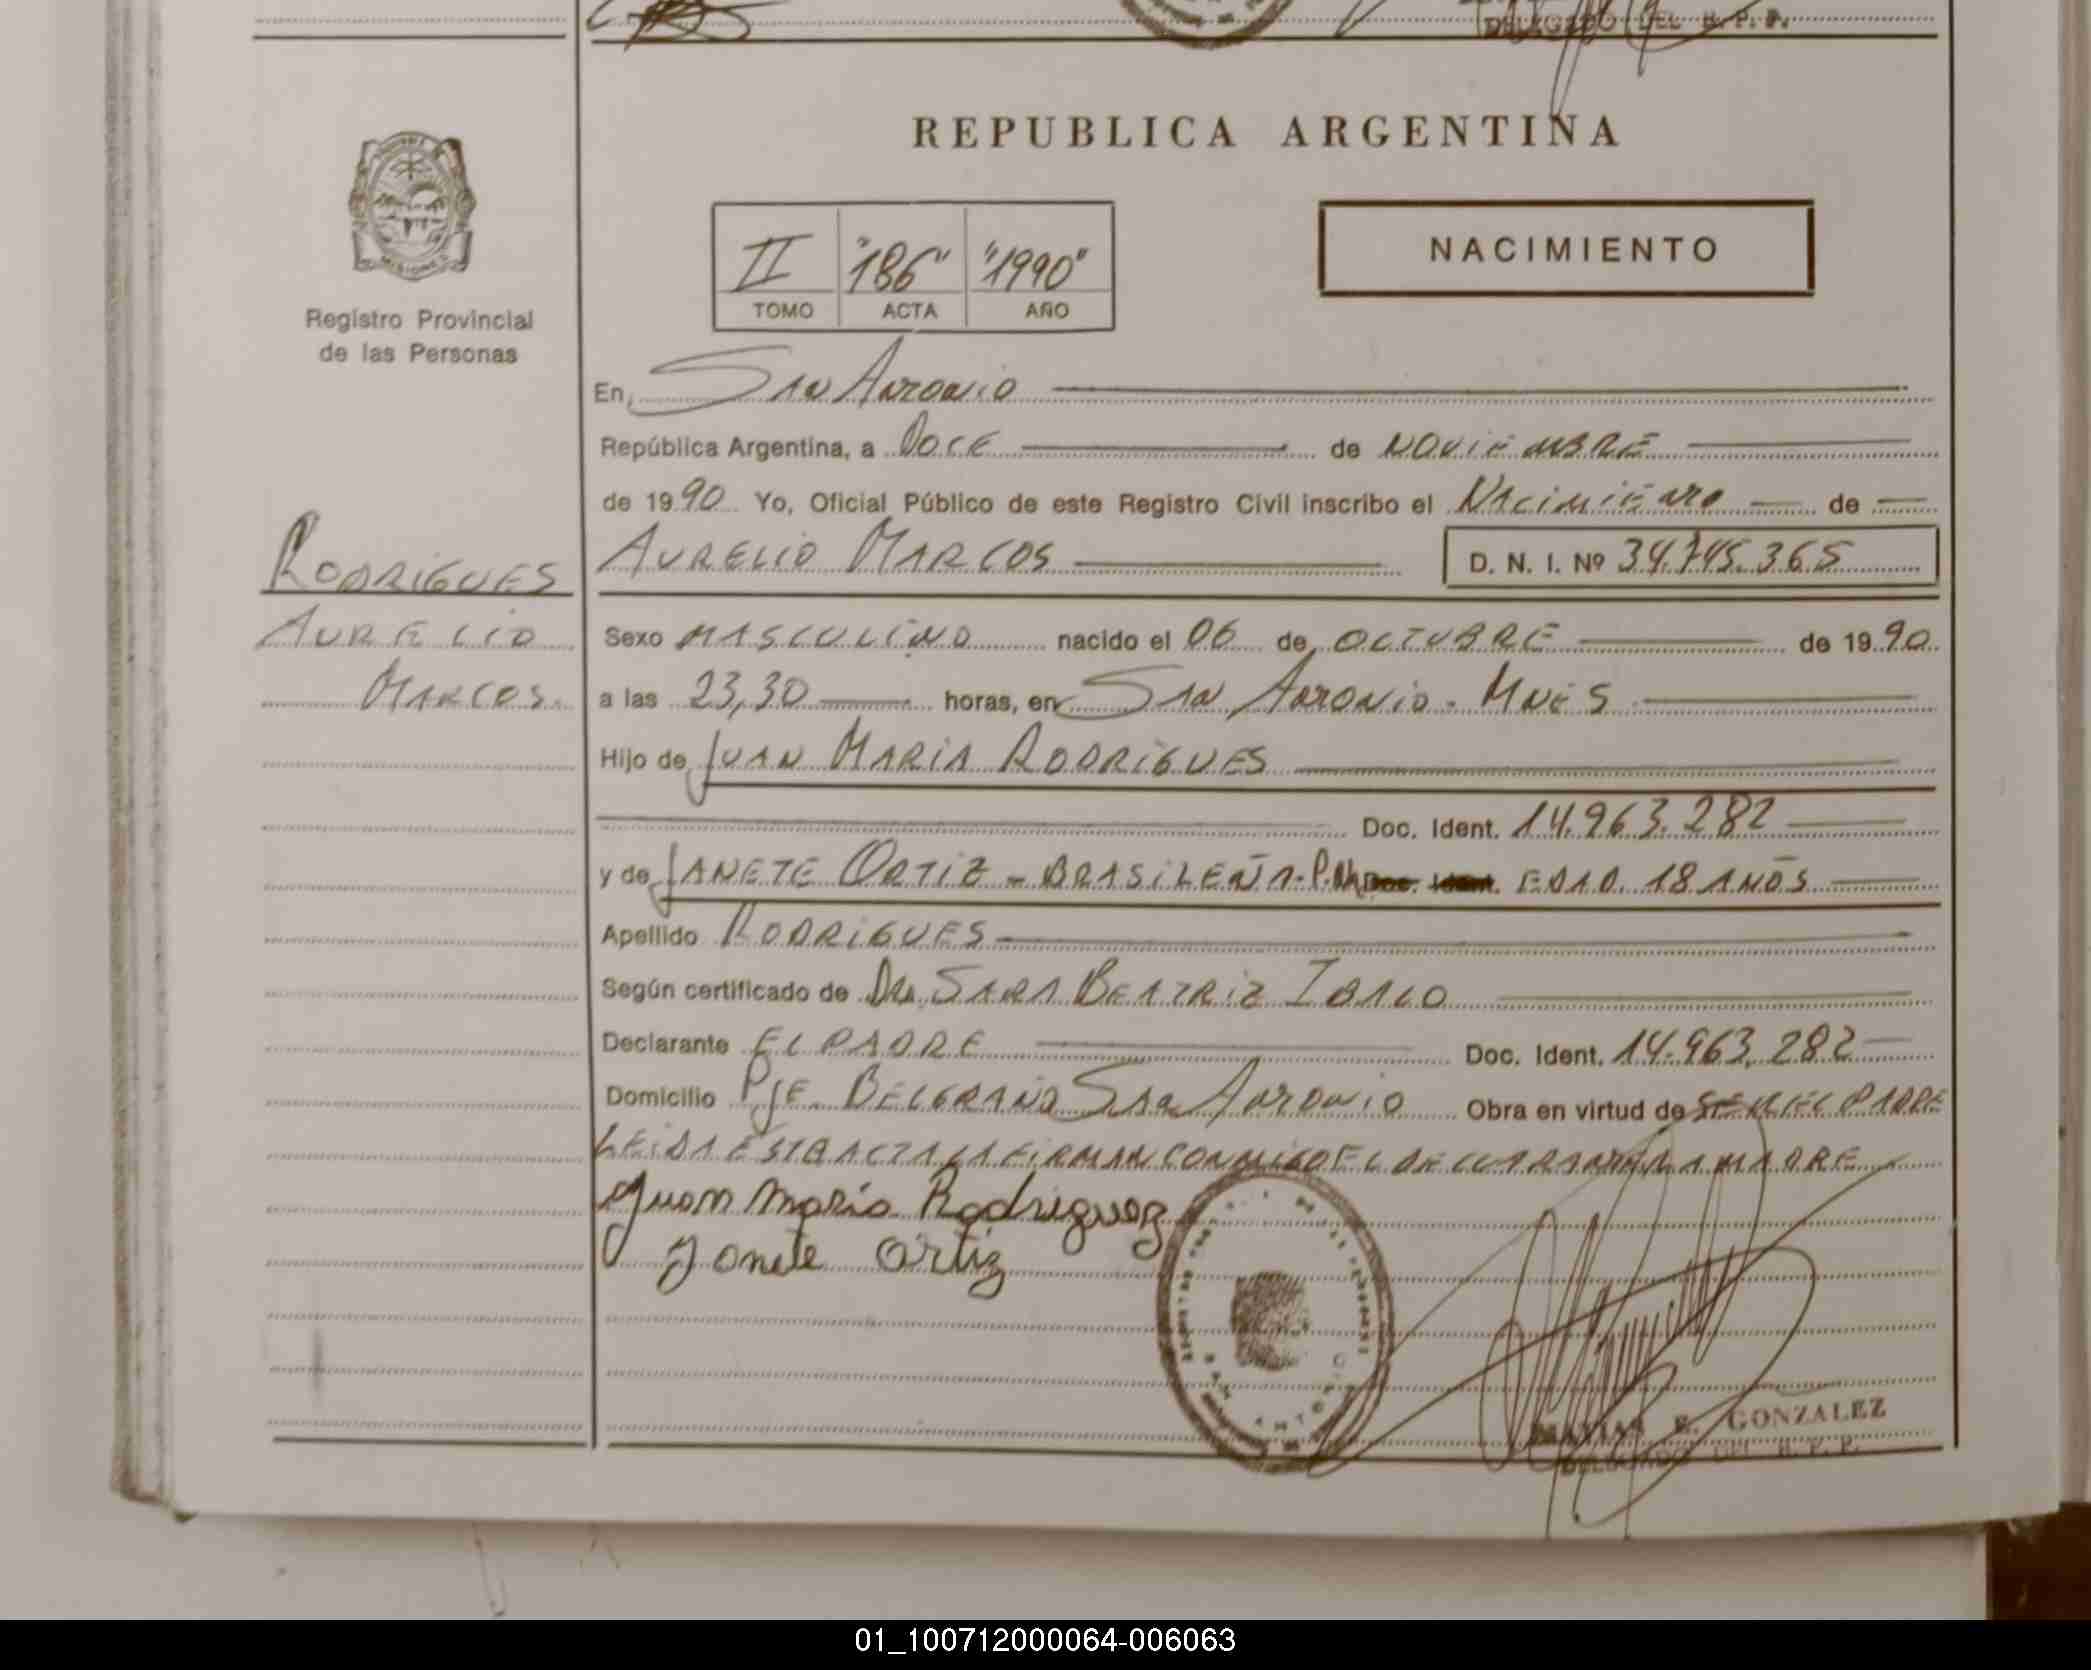 DELEGADO DEL R. P. P.
REPUBLICA ARGENTINA
MISIONES
Registro Provincial
de las Personas
II "186" "1990"
TOMO ACTA AÑO
NACIMIENTO
En, San Antonio
República Argentina, a Doce de Noviembre
de 1990 Yo, Oficial Público de este Registro Civil inscribo el Nacimiento de
RODRIGUES
AURELIO
MARCOS.
AURELIO MARCOS D. N. I. Nº 34.745.365
Sexo MASCULINO nacido el 06 de OCTUBRE de 1990
a las 23,30 horas, en San Antonio - Mnes
Hijo de JUAN MARIA RODRIGUES
Doc. Ident. 14.963.282
y de JANETE ORTIZ - BRASILEÑA - P.M Doc. Ident. EDAD 18 AÑOS
Apellido RODRIGUES
Según certificado de Dra. SARA BEATRIZ
Declarante EL PADRE Doc. Ident. 14.963.282
Domicilio Pje. BELGRANO San Antonio Obra en virtud de SER EL PADRE
LEIDA ESTA ACTA LA FIRMAN CONMIGO EL DECLARANTE LA MADRE
Juan Maria Rodriguez
Janete Ortiz
SAN ANTONIO
MATIAS E. GONZALEZ
DELEGADO DEL R. P. P.
01_100712000064-006063